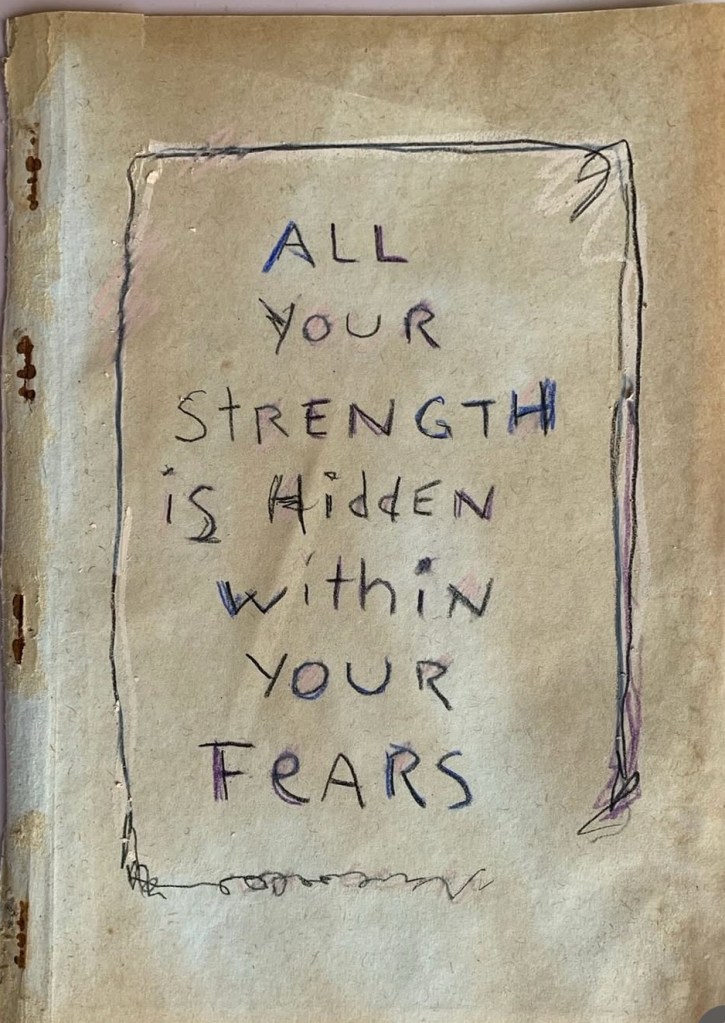 ALL
YOUR
StRENGTH
is HiddEN
withiN
YOUR
FeARS